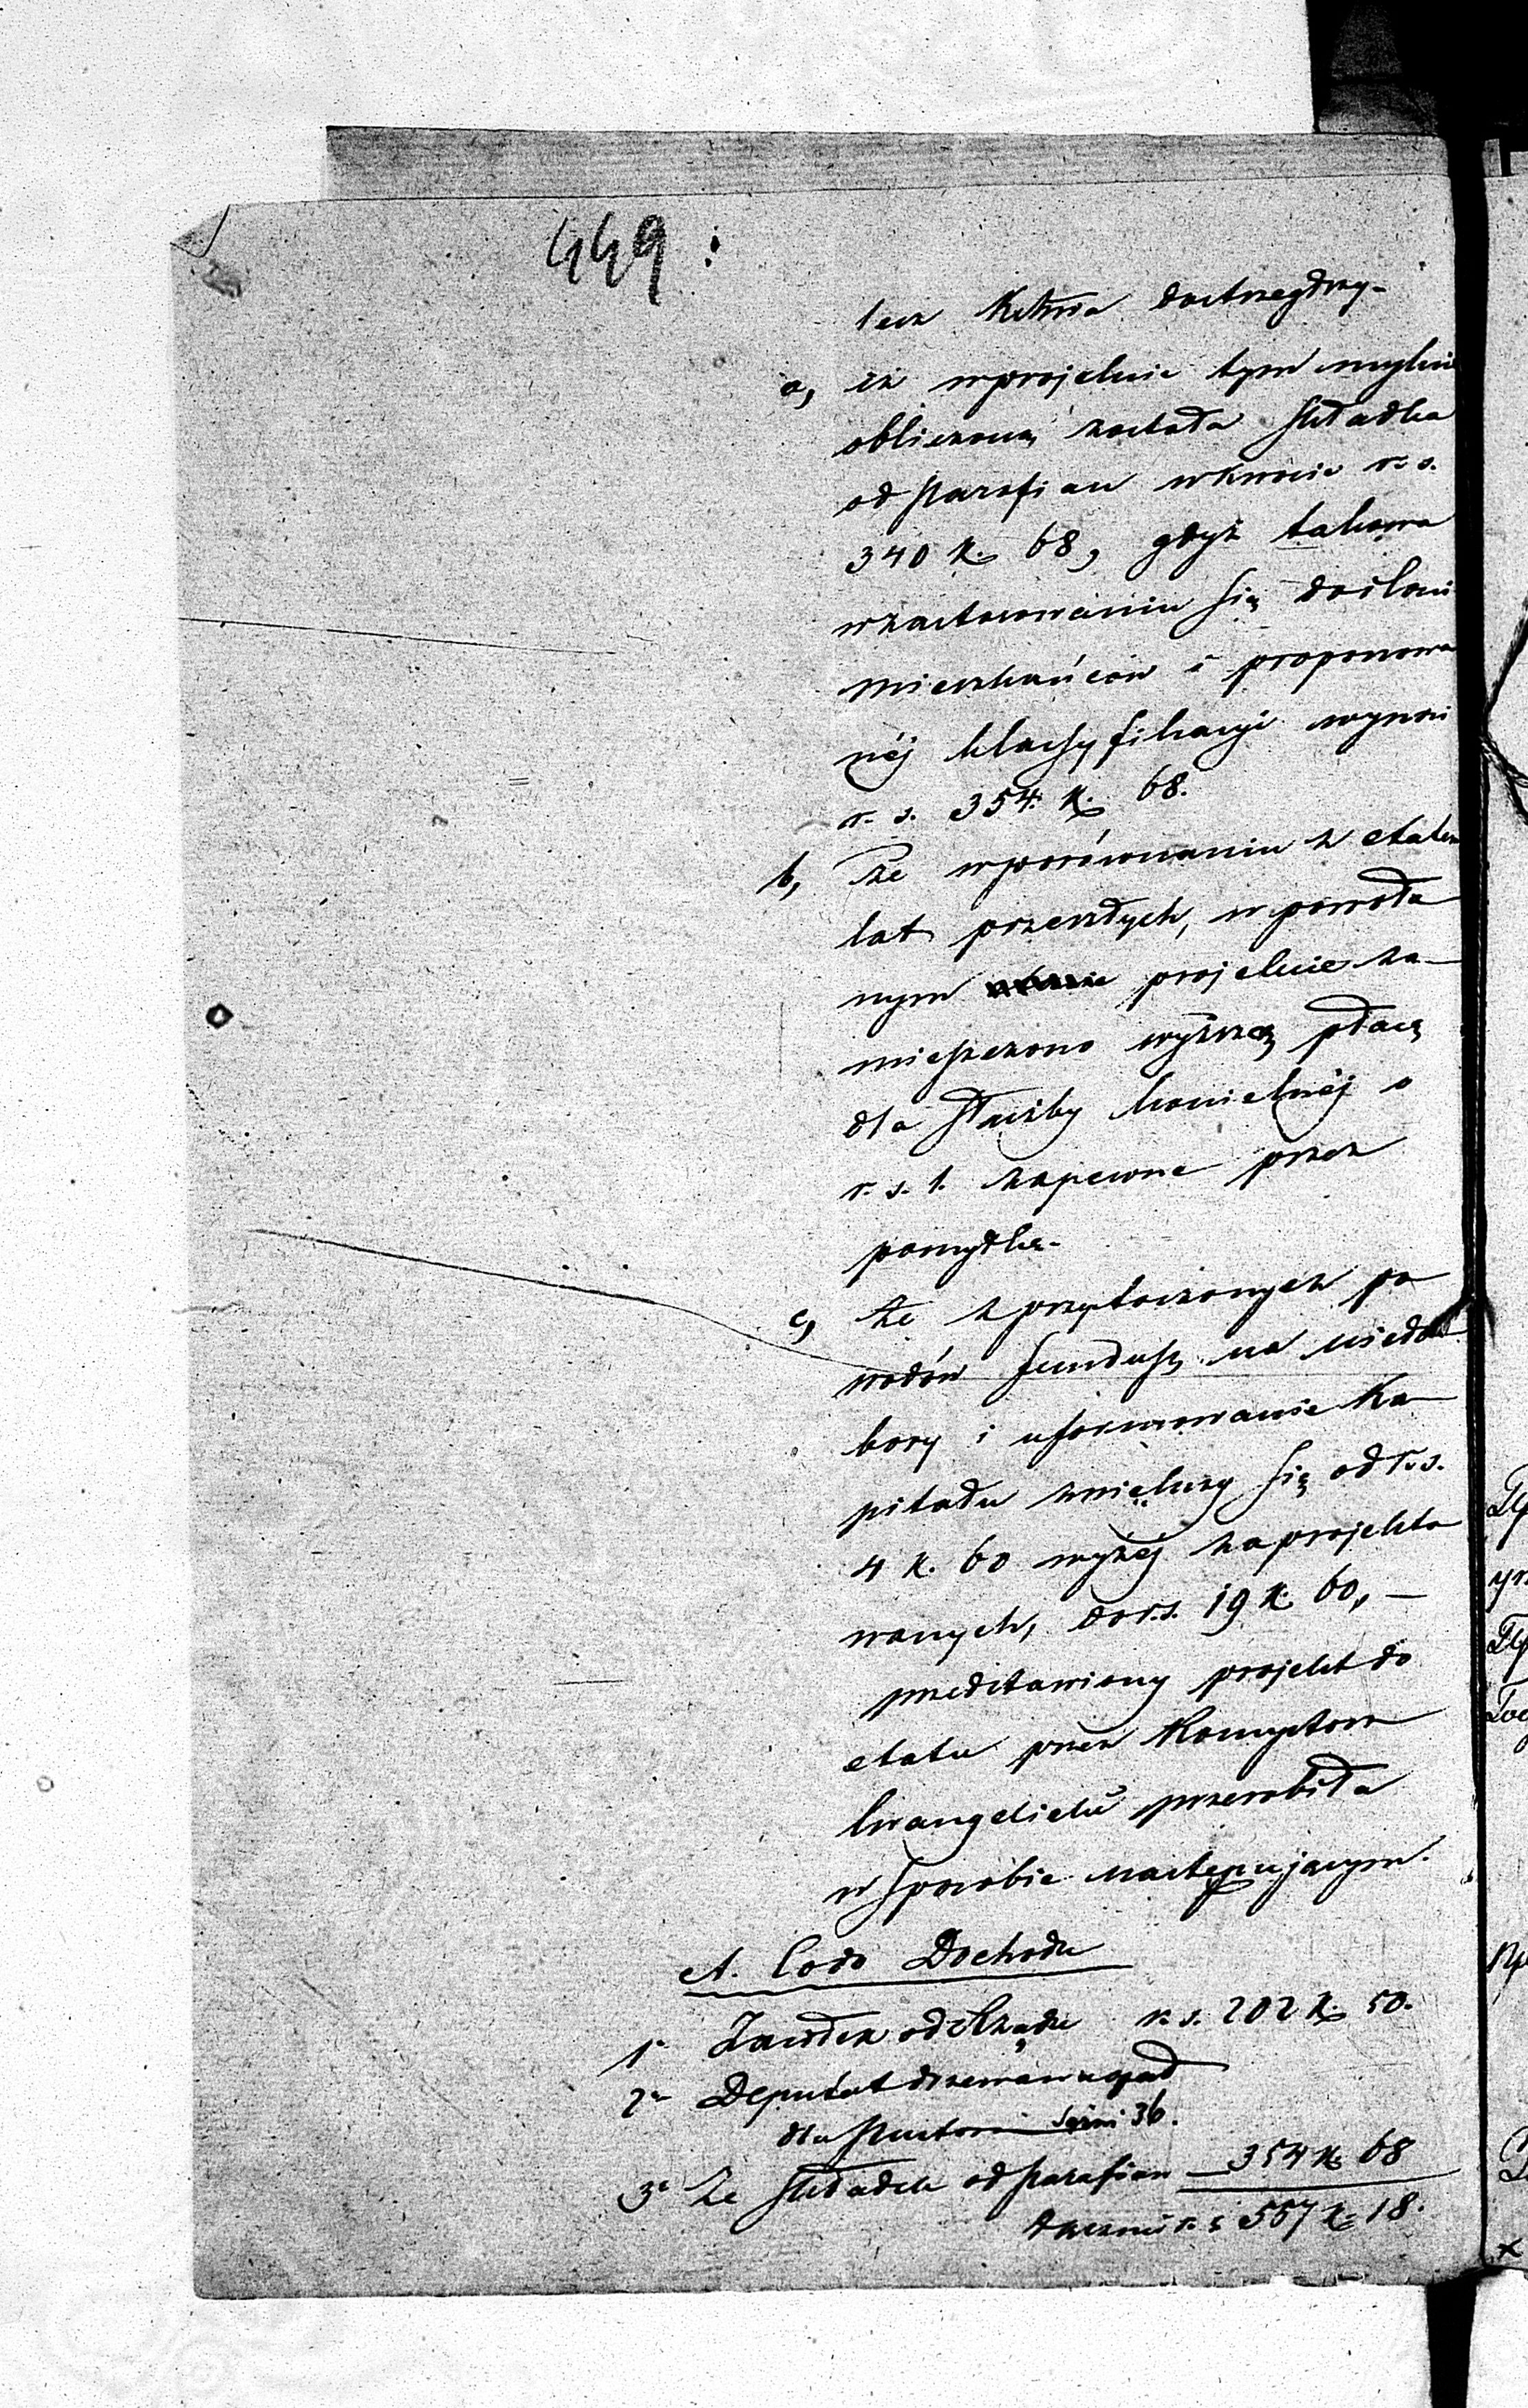 449
lecz która dostrzegłszy-
a, iż wprojekcie tym mylnie
obliczoną została składka
od parafian wkwocie r. s.
340 K. 68, gdyż takowa
wzastosowaniu się doilości
mieszkańców i proponowa
nej klassyfikacyi wynosi
r. s. 354. K. 68.
b, że wporównaniu z etatem
lat przeszłych, w powoła
nym projekcie za-
mieszczono wyższą płacę
dla służby kościelnej o
r. s. 1. zapewne przez
pomyłkę.
c, że z przytoczonych po
wodów fundusz na niedo
bory i uformowanie Ka
pitału zwiększy się od r. s.
4 K. 60 wyżej zaprojekto
wanych, do r. s. 19 K. 60, —
przedstawiony projekt do
etatu przez Konsystorz
Ewangelicki przerobiła
w sposobie następującym.
A. Codo Dochodu
1° Zasiłek od Rządu r. s. 202 K. 50.
2° Deputat drzewa na opał
dla Pastora Sążni 36.
3° Ze składek od parafian — 354 K. 68
Łącznie r. s. 557 K. 18.